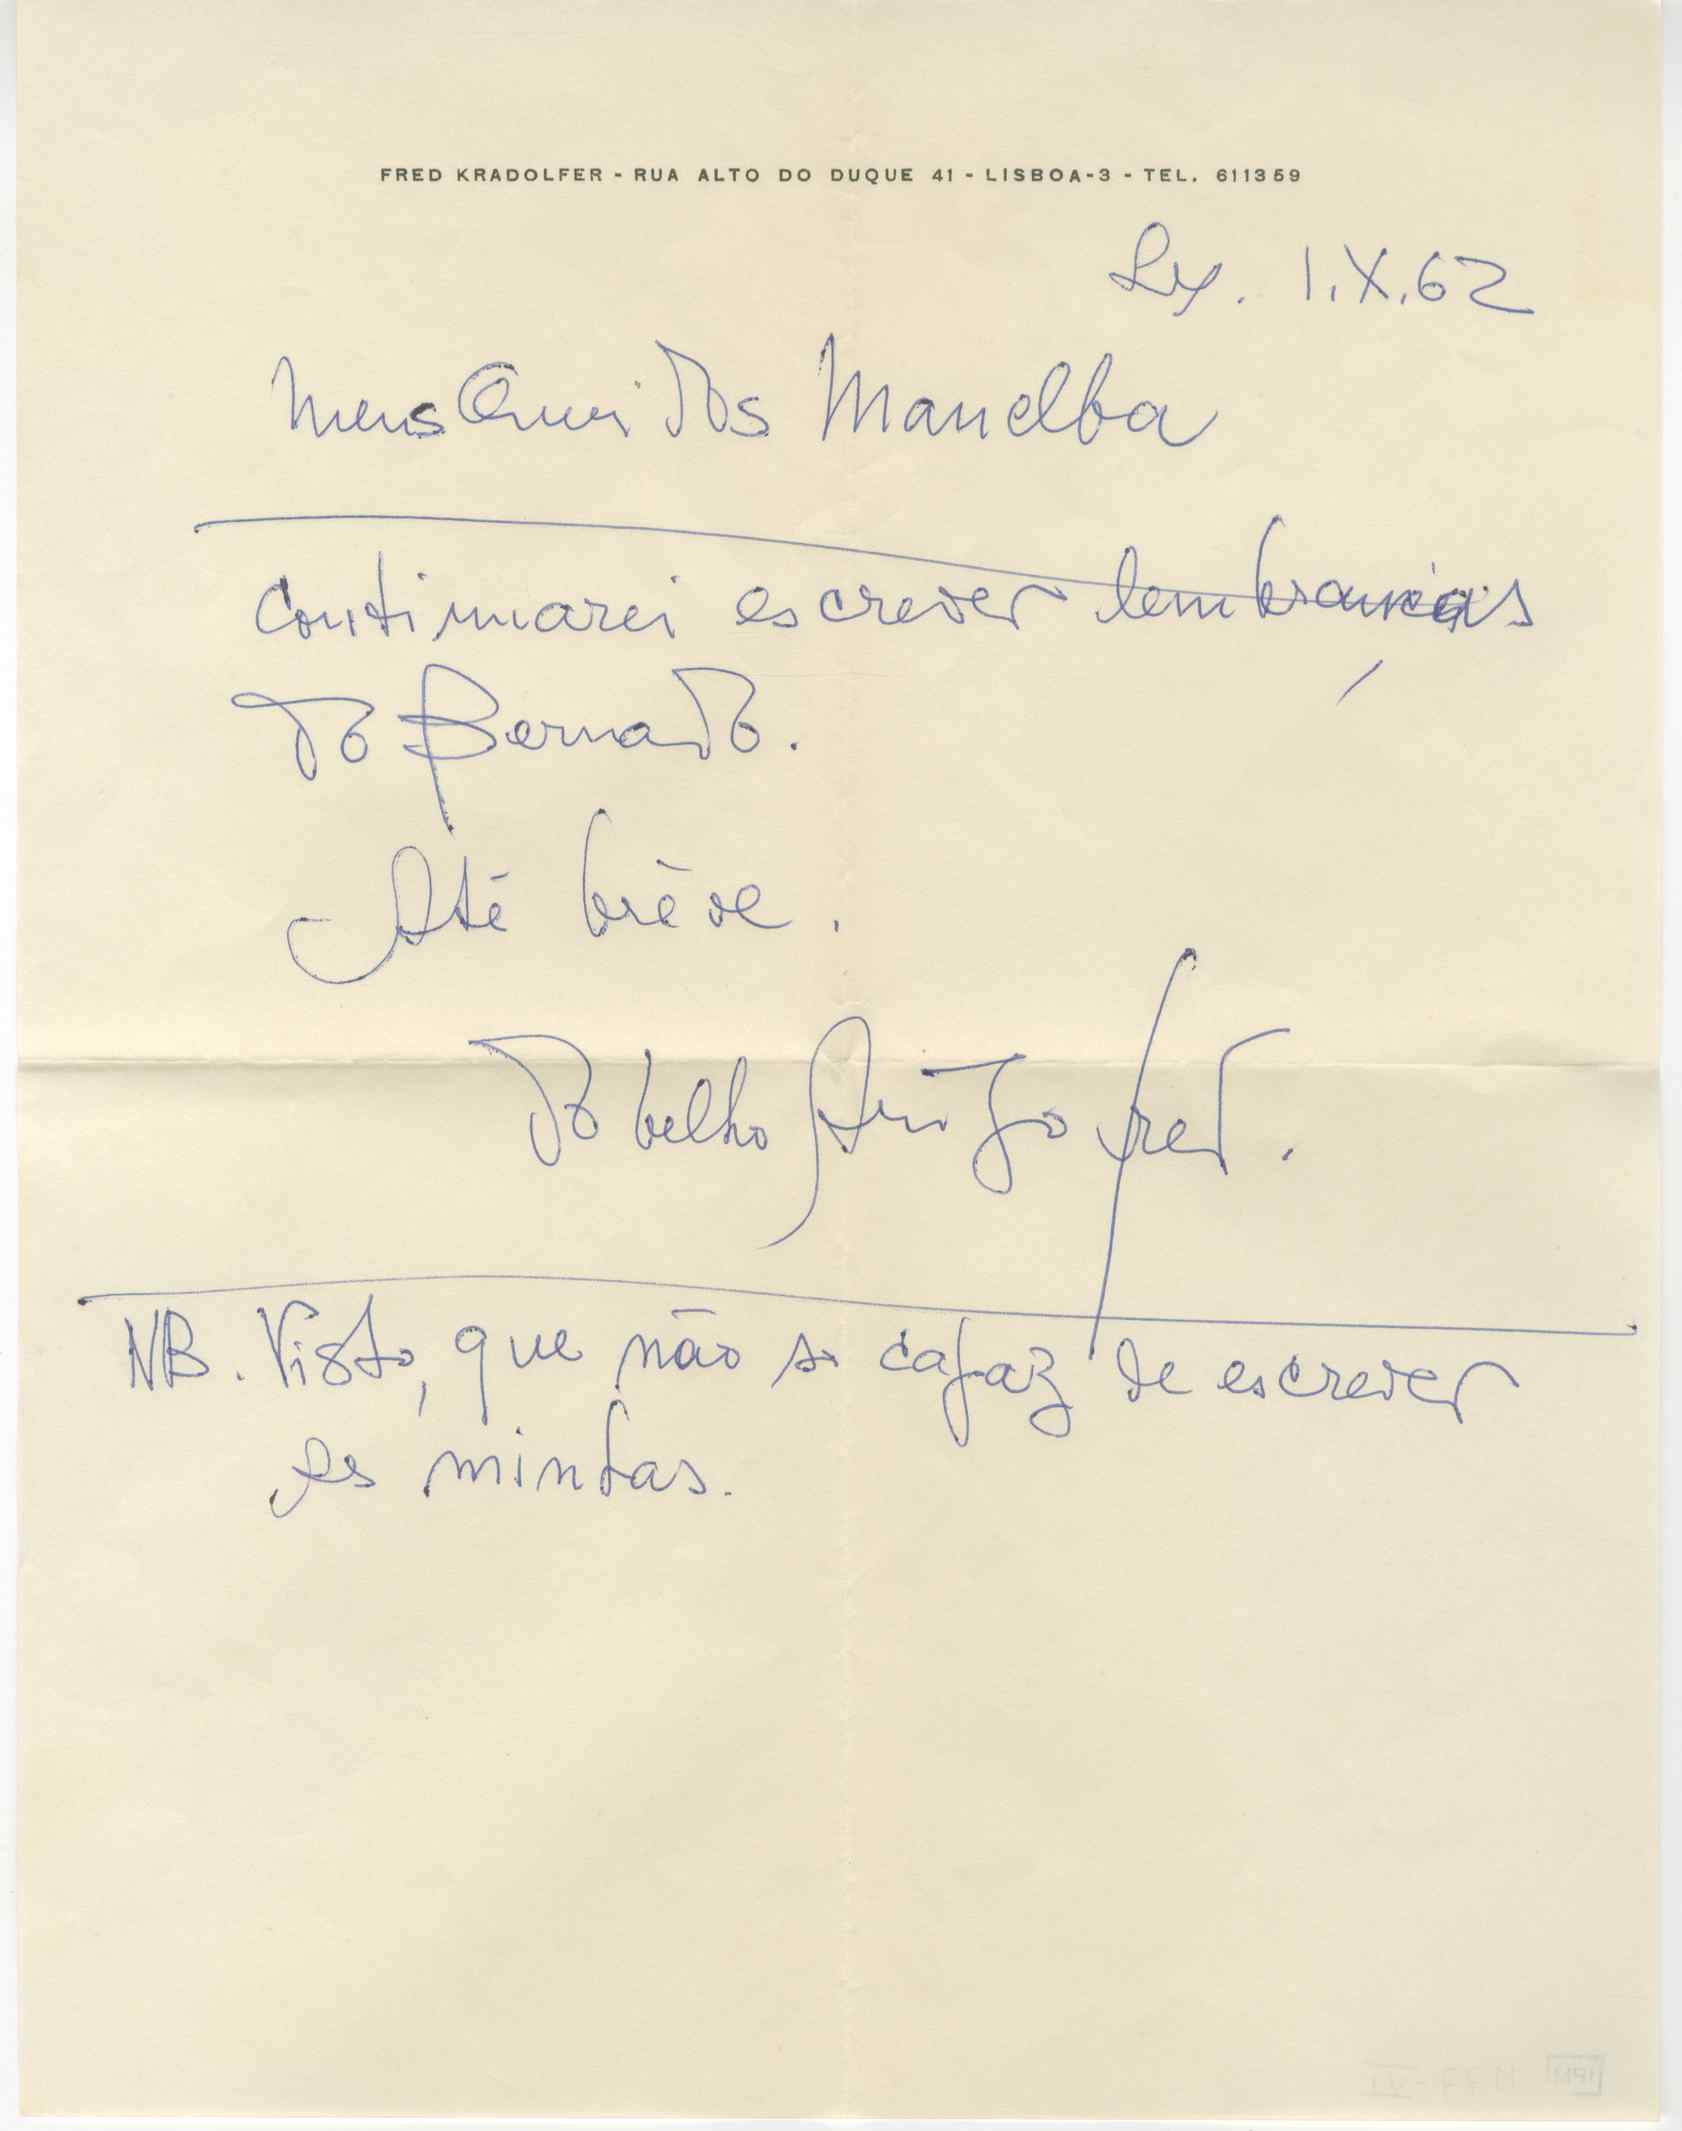 FRED KRADOLFER - RUA ALTO DO DUQUE 41 - LISBOA-3 - TEL. 611359
Lx. 1.X.62
Meus Queridos Manelba
Continuarei escrever lembranças
do Bernardo.
Até brève.
do velho Amigo Fred.
NB. Visto, que não so capaz de escrever
as minhas.